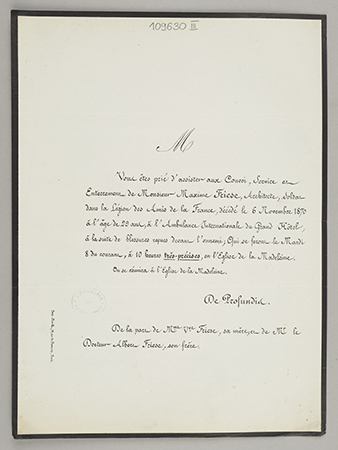 109630 III
M
Vous êtes prié d'assister aux Convoi, Service et
Enterrement de Monsieur Maxime Friese, Architecte, Soldat
dans la Légion des Amis de la France, décédé le 6 Novembre 1870
à l'âge de 29 ans, à l'Ambulance Internationale du Grand Hôtel,
à la suite de blessures reçues devant l'ennemi; Qui se feront le Mardi
8 du courant, à 10 heures très-précises, en l'Eglise de la Madeleine.
On se réunira à l'Eglise de la Madeleine.
De Profundis.
De la part de Mme Vve Friese, sa mère, et de Mr le
Docteur Albert Friese, son frère.